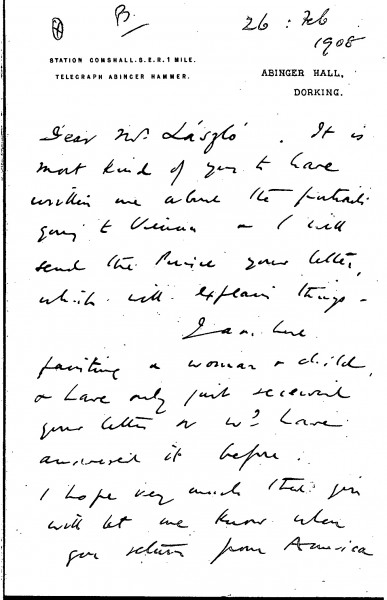 B.
26 : Feb
1908
STATION GOMSHALL. S.E.R. 1 MILE.
TELEGRAPH ABINGER HAMMER.
ABINGER HALL,
DORKING.
Dear Mr. László. It is
most kind of you to have
written me about the portrait
going to Vienna & I will
send the Prince your letter,
which will explain things -
I am here
painting a woman & child,
& have only just received
your letter or wd have
answered it before.
I hope very much that you
will let me know when
you return from America